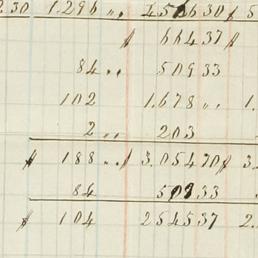 2.30 1.296 „ 1.50630 $
$ 66437 $
84 „ 50933
102 1.678 „ 1.
2 „ 203
$ 188 „ $ 3.05470 $ 3
84 50933
$ 104 254537 2.